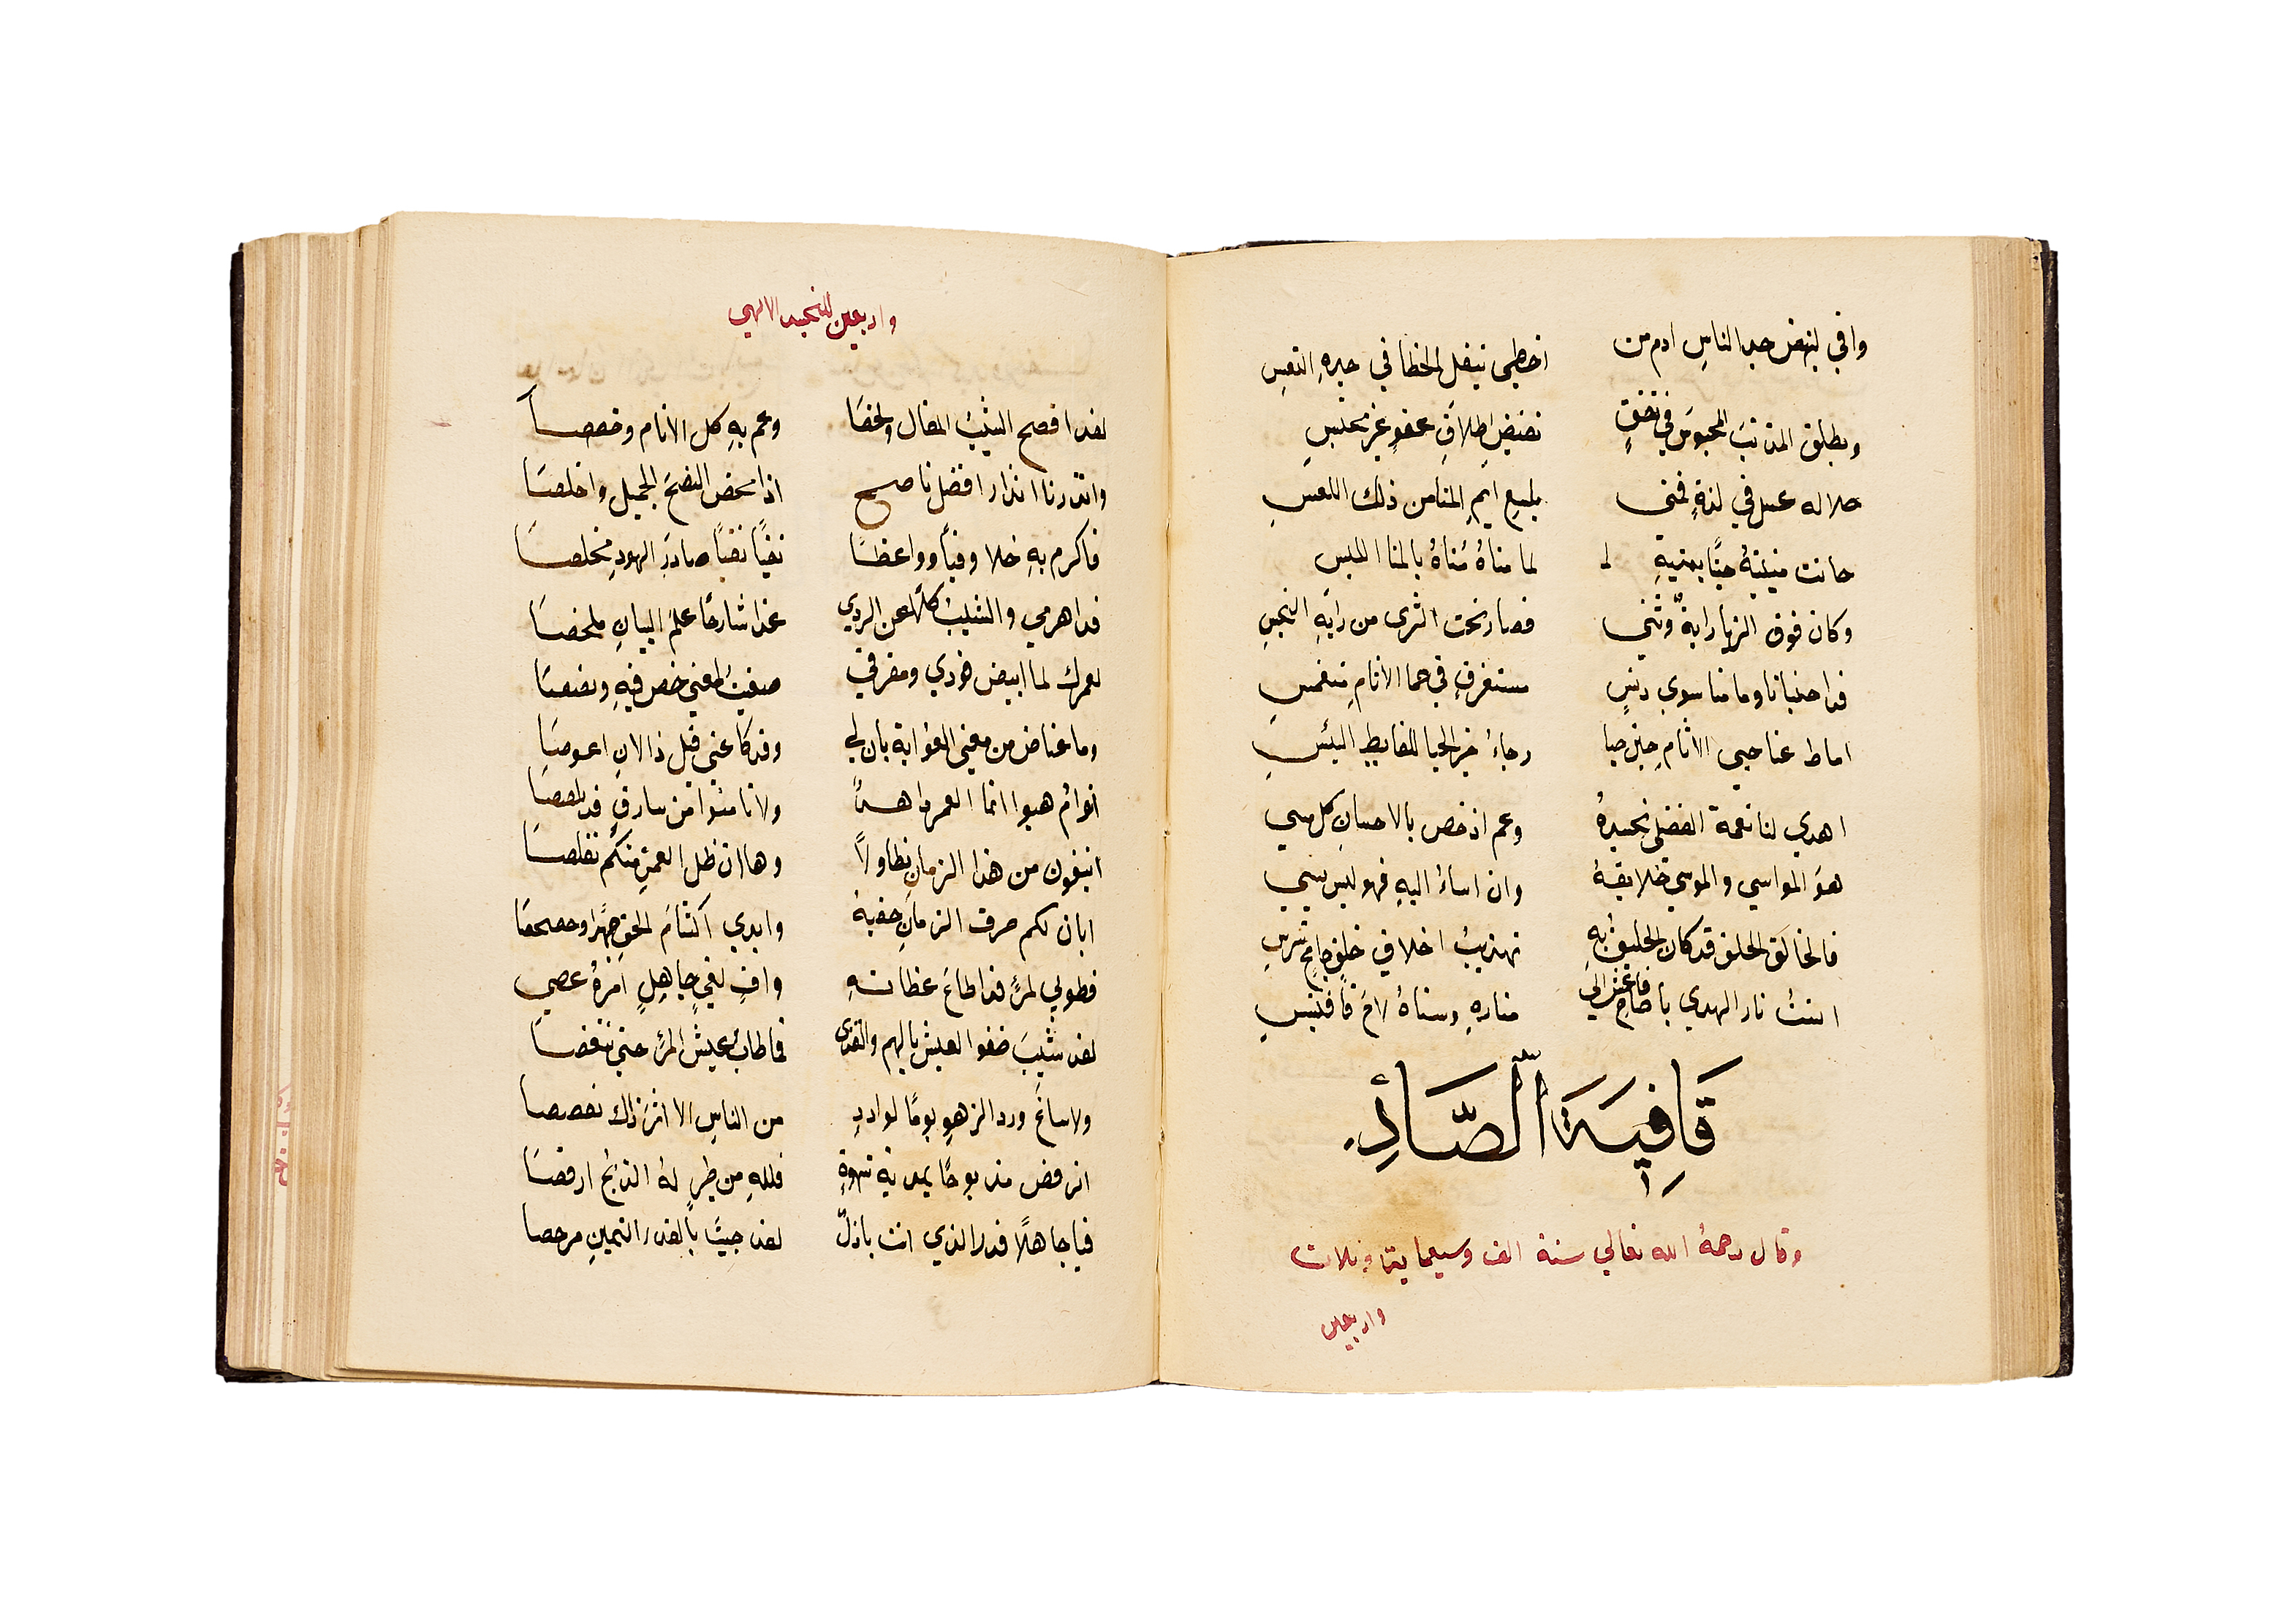 وافي لينهض جد الناسِ ادم من اخطي بثقل الخطا في جيدهِ التعِسِ
ويطلق المذنبَ المحبوسَ في نفقٍ نقيضَ اطلاقِ عفوٍ غير محتبسِ
حلا له عسل في لذةٍ فمني بلسعِ ايمِ المنا من ذلك اللعسِ
حانت منيتهُ حبًّا بمنيةِ لما مناهُ مُناهُ بالمنا اللبس
وكان فوق الزها رايةٌ وثني فصار تحت الثرى من رايهِ النجسِ
فداحنبانا وما منا سوي دنسٍ مستغرقٍ في حما الاثامِ منغمسِ
اماط عنا حبي الاثامِ حين حبا رجاءُ خير الحيا للقانطِ اليئسِ
اهدي لنا نعمة الفضلى تجسدهُ وعم اذ خص بالاحسانِ كل مسي
هوَ المواسي والموسي خلايقهُ وان اساءُ اليهِ فهو ليس يسي
فالخالق الخلق قد كان الخليق بهِ تهذيبُ اخلاقِ خلقٍ جامحٍ شرسِ
انستُ نار الهدي يا صاحِ فاعش الي منارهِ وسناهُ لاحَ فاقتبسِ
قَافِيَة الصَّادِ
وقال رحمهُ الله تعالي سنة الف وسبعماية وثلاث
واربعين
واربعين للتجسد الالهي
لقد افصح الشيبُ المقال ولخصَا وعم بهِ كل الانام وخصصا
وانذرنا انذار افضل ناصح اذا محض النصحَ الجميل واخلصَا
فاكرم بهِ خلا وفيًّا وواعظًا تقيًّا نقيًّا صادقَ الودِ مخلصَا
فداهرمي والشيبُ كلًّا عن الردي غدا شارحًا علمَ البيانِ ملخصَا
لعمرك لما ابيض فودي ومفرقي صفيتُ لمعني خص فيهِ ونصصَا
وما غاض من معني الغوايةِ بان لي وقد كا عني قبل ذا الانِ اعوصَا
انوامُ هبوا انما العمر ذاهبٌ ولا تامنوا من سارقٍ قد تلصصَا
اتبغون من هذا الزمانِ تطاولًا وها ان ظل العمرِ منكم تقلصَا
ابان لكم صرفُ الزمانِ خفيهُ وابدي اكتتامَ الحقِ جهرًا وحصحصَا
فطوبي لمرءٍ قد اطاعَ عظاتهِ وافٍ لغيٍ جاهلٍ امرهُ عصي
لقد شيبَ صفو العيش بالهم والقذى فما طابَ عيش المرء حتي تنغصَا
ولا ساغَ ورد الزهوِ يومًا لواردِ من الناسِ الا اثرَ ذاك تغصصا
اترقص مذبوحًا بمديةِ شهوةٍ فللهِ من طيرٍ لهُ الذبحُ ارقصَا
فيا جاهلًا قدر الذي انت باذلٌ لقد جيتَ بالقدر الثمينِ مرخصا